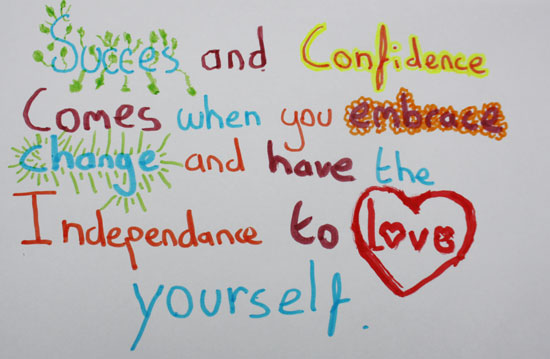 Succes and Confidence
Comes when you embrace
change and have the
Independance to Love
yourself.